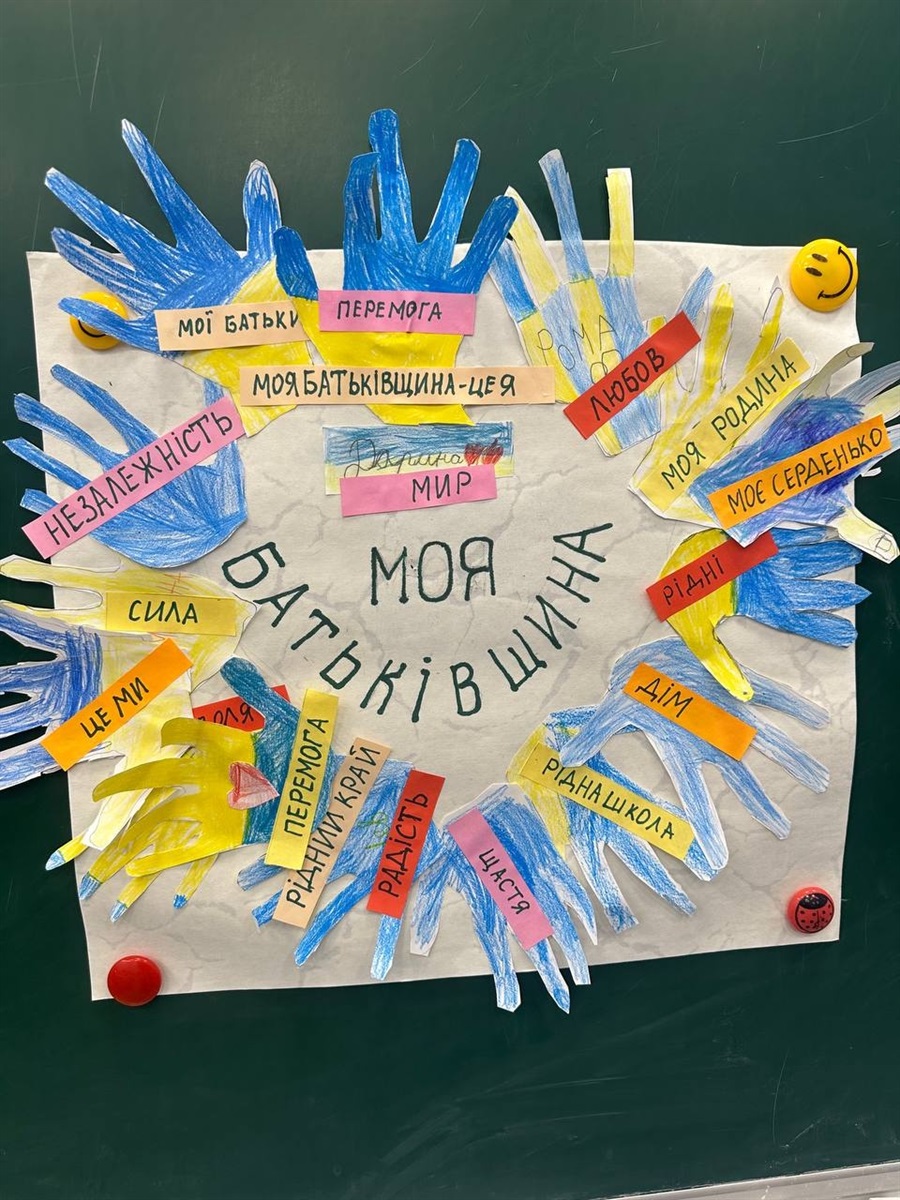 МОЇ БАТЬКИ
ПЕРЕМОГА
МОЯ БАТЬКІВЩИНА-ЦЕ Я
РОМА
ЛЮБОВ
МОЯ РОДИНА
МОЄ СЕРДЕНЬКО
НЕЗАЛЕЖНІСТЬ
Дарина
МИР
МОЯ
БАТЬКІВЩИНА
РІДНІ
СИЛА
ЦЕ МИ
ВОЛЯ
ПЕРЕМОГА
РІДНИЙ КРАЙ
РАДІСТЬ
ЩАСТЯ
РІДНА ШКОЛА
ДІМ